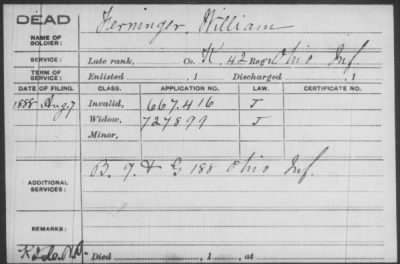 DEAD
NAME OF SOLDIER: Ferninger, William
SERVICE: Late rank, Co. K, 42 Reg't Ohio Inf.
TERM OF SERVICE: Enlisted , 1 Discharged , 1
DATE OF FILING. CLASS. APPLICATION NO. LAW. CERTIFICATE NO.
1888 Aug. 7 Invalid, 667.416 J
Widow, 727899 J
Minor,
ADDITIONAL SERVICES: B. F. & G 188 Ohio Inf.
REMARKS:
Died , 1 , at